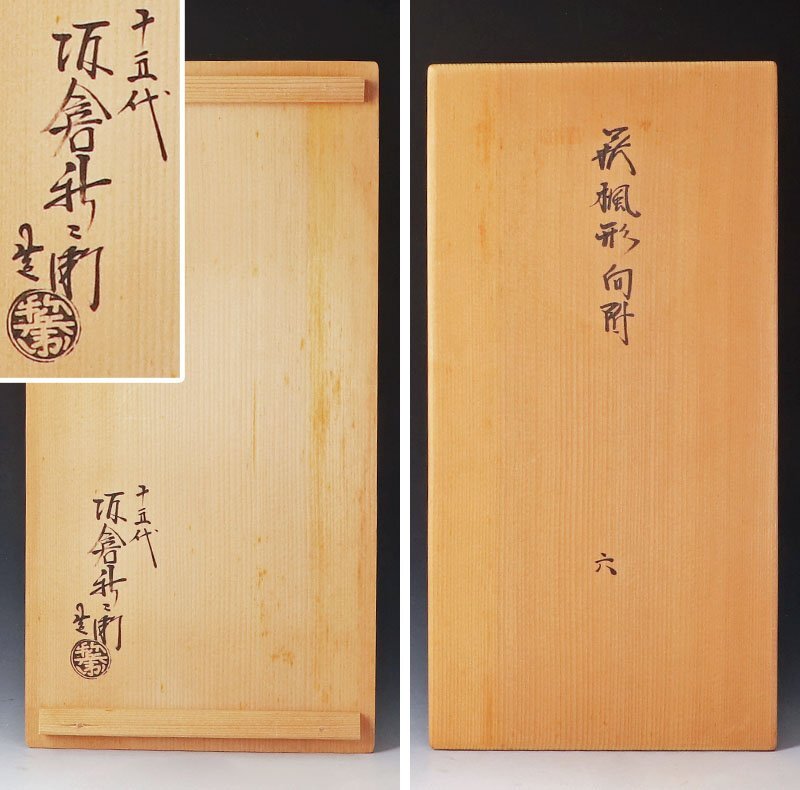 十五代
坂倉新兵衛
造
十五代
坂倉新兵衛
造
萩楓形向附
六